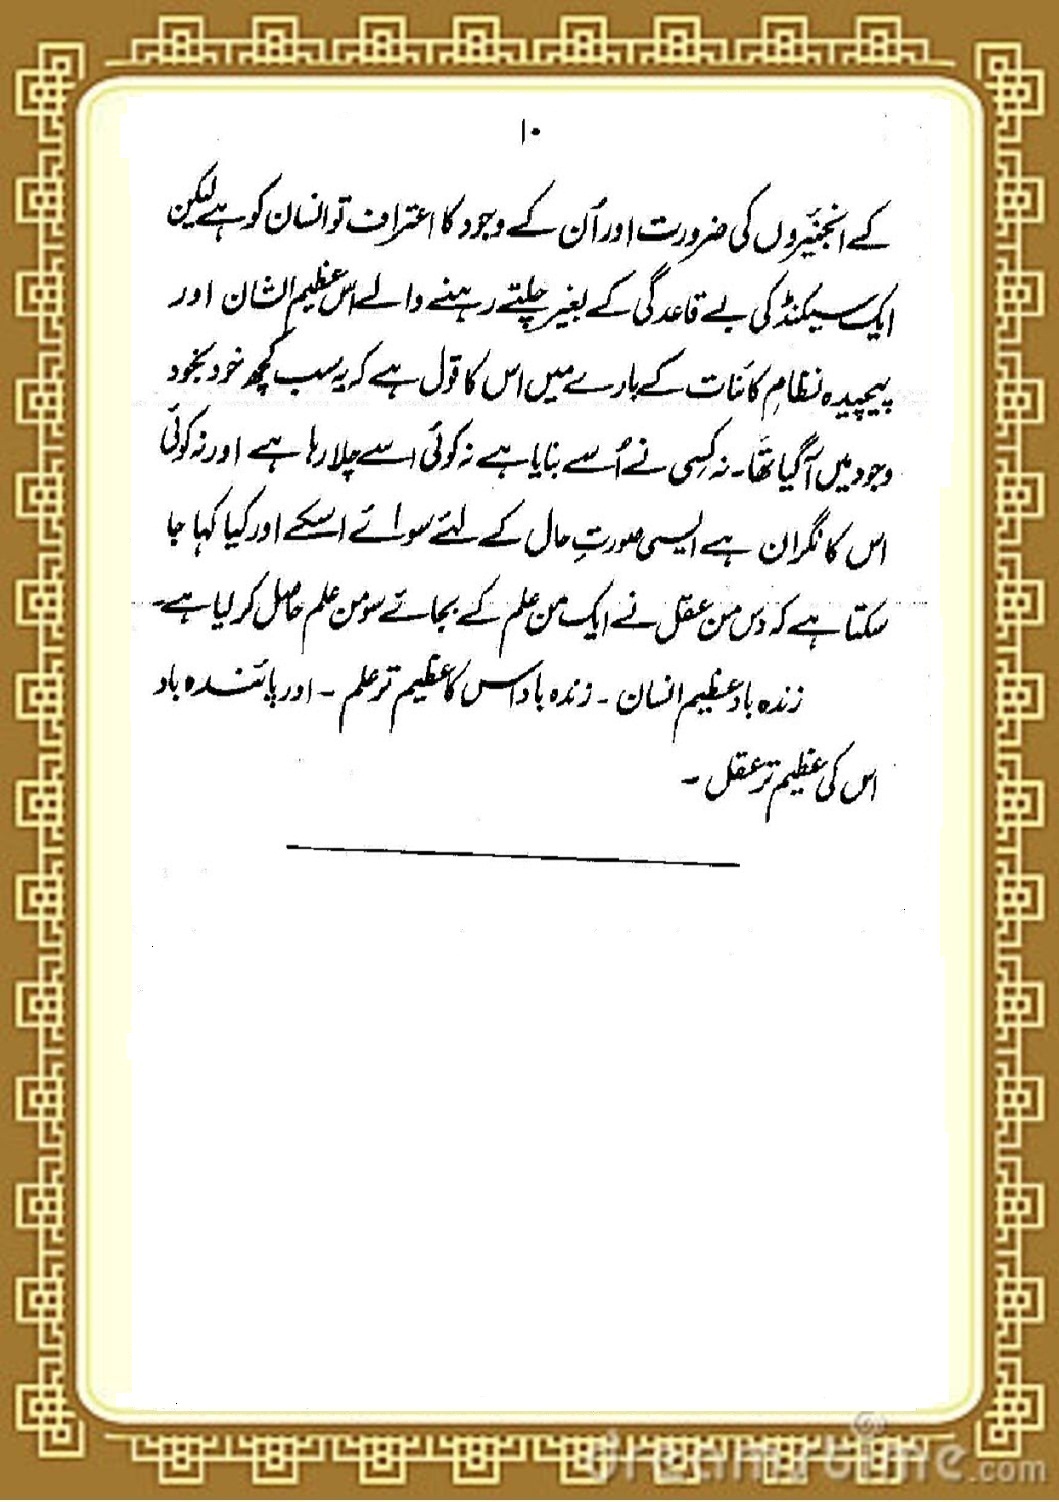 ۱۰
کے انجنیئروں کی ضرورت اور اُن کے وجود کا اعتراف تو انسان کو ہے لیکن
ایک سیکنڈ کی بے قاعدگی کے بغیر چلتے رہنے والے اس عظیم الشان اور
پیچیدہ نظامِ کائنات کے بارے میں اس کا قول ہے کہ یہ سب کچھ خود بخود
وجود میں آگیا تھا۔ نہ کسی نے اُسے بنایا ہے نہ کوئی اسے چلا رہا ہے اور نہ کوئی
اس کا نگران ہے ایسی صورتِ حال کے لئے سوائے اسکے اور کیا کہا جا
سکتا ہے کہ دس من عقل نے ایک من علم کے بجائے سو من علم حاصل کر لیا ہے۔
زندہ باد عظیم انسان ۔ زندہ باد اس کا عظیم تر علم ۔ اور پائندہ باد
اس کی عظیم تر عقل ۔
dreamstime.com